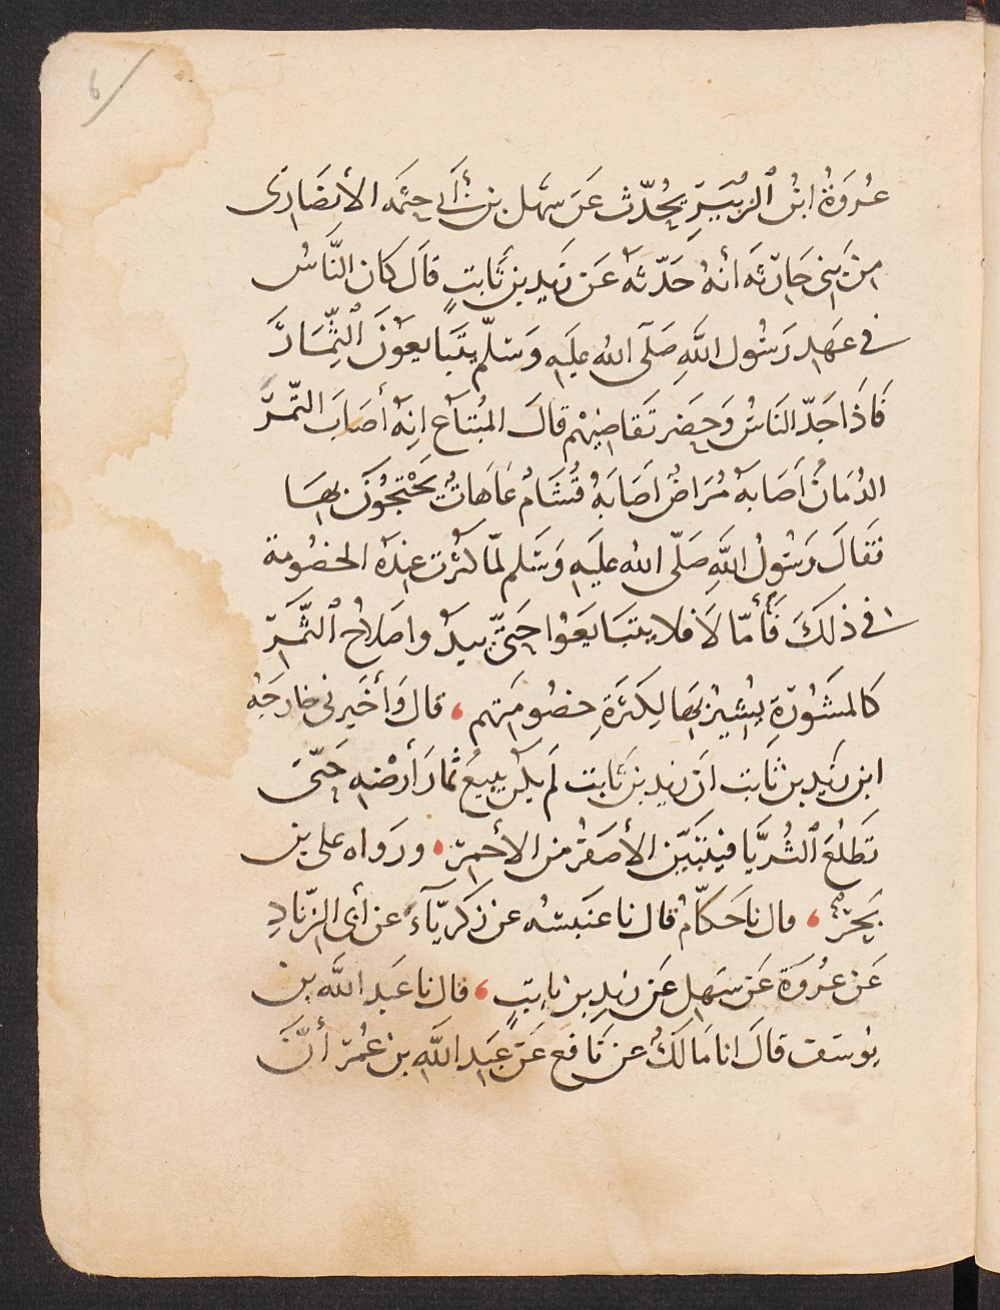 6
عُروَةُ ابنُ الزبَيرِ يحُدّث عَن سهَل بن أَبي حثمَه الأنصَارى
من بَنى حَارثَه أنهُ حَدّثه عَن زيَد بن ثَابتٍ قالَ كان النَّاسُ
فى عَهدِ رَسُول اللَّهِ صَلّى الله عليَه وَسَلّم يتبَايعوُنَ الثّمَارَ
فَاذَا جَدّ النَاسُ وَحضَر تَقاضيهُم قالَ المبُتاع انهُ أصَابَ الثّمرَ
الدُمَانُ اصَابهُ مُرَاضُ اصَابَهُ قُشَامُ عَاهَاتٌ يَحْتجّوُنَ بهَا
فقَالَ رَسُولُ اللَّهِ صَلّى الله عليَه وَسَلم لمّا كثُرت عِندَه الخصُومة
فى ذلكَ فَأمّا لَا فلا يتبَايعَوُا حتىّ يبدُ واصَلاحُ الثّمَرَ
كالمشَوُرَةِ يُشيرُ بهَا لِكَثرَةِ خصُومَتهم ، قال وَأخَبرنى خارجَهُ
ابن زيَد بن ثَابت انَ زيد بن ثَابت لَم يكن يبيعُ ثمارَ أرْضهِ حَتّىَ
تَطلُعَ الثُريَّا فيتَبَيّن الأصفَرُ من الأحمرَ ، ورَواه على بن
بَحَرٌ ، قال نا حَكاّمُ قال نا عنَبسَهُ عن زكريَّآء عن أبى الزّنادِ
عَن عُروَةَ عَن سَهلِ عَن زيدِ بن ثابتٍ ، قال نا عَبد اللَّه بن
يوُسَف قالَ انا مَالكُ عن نَافع عَن عبَدِ اللَّهِ بن عُمَر أنَّ